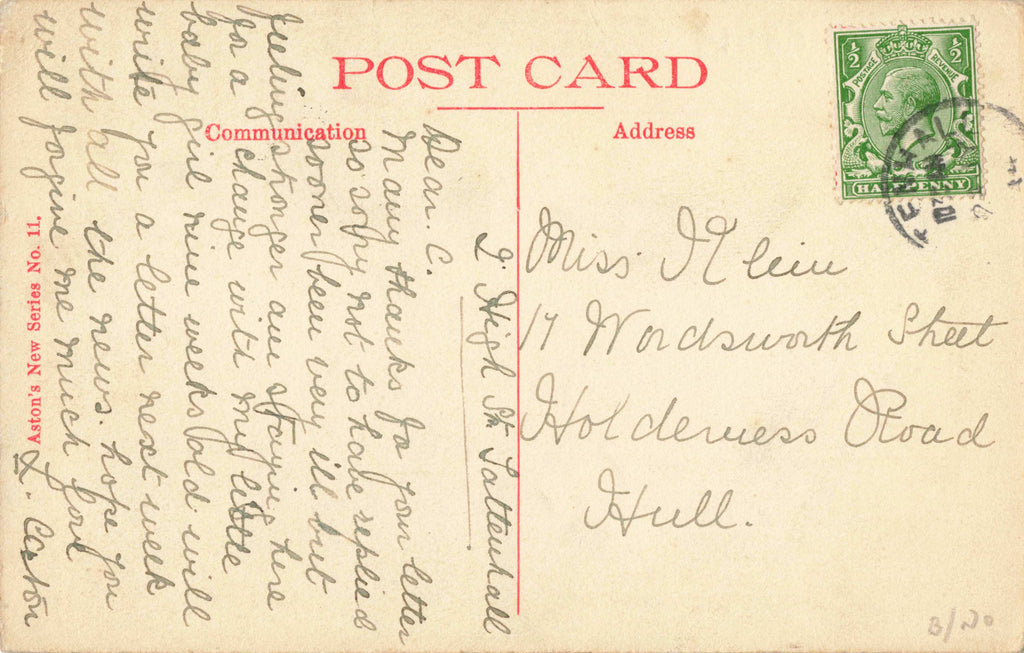 POST CARD
Communication
Address
½ ½
POSTAGE REVENUE
HALFPENNY
2. High St. Tattenhall
Dear. C.
Many thanks for your letter
so sorry not to have replied
sooner been very ill but
feeling stronger am staying here
for a change with my little
baby girl nine weeks old will
write you a letter next week
with all the news. hope you
will forgive me much love
L. Caston
Miss Klein
17 Wordsworth Street
Holderness Road
Hull.
Aston's New Series No. 11.
B/20